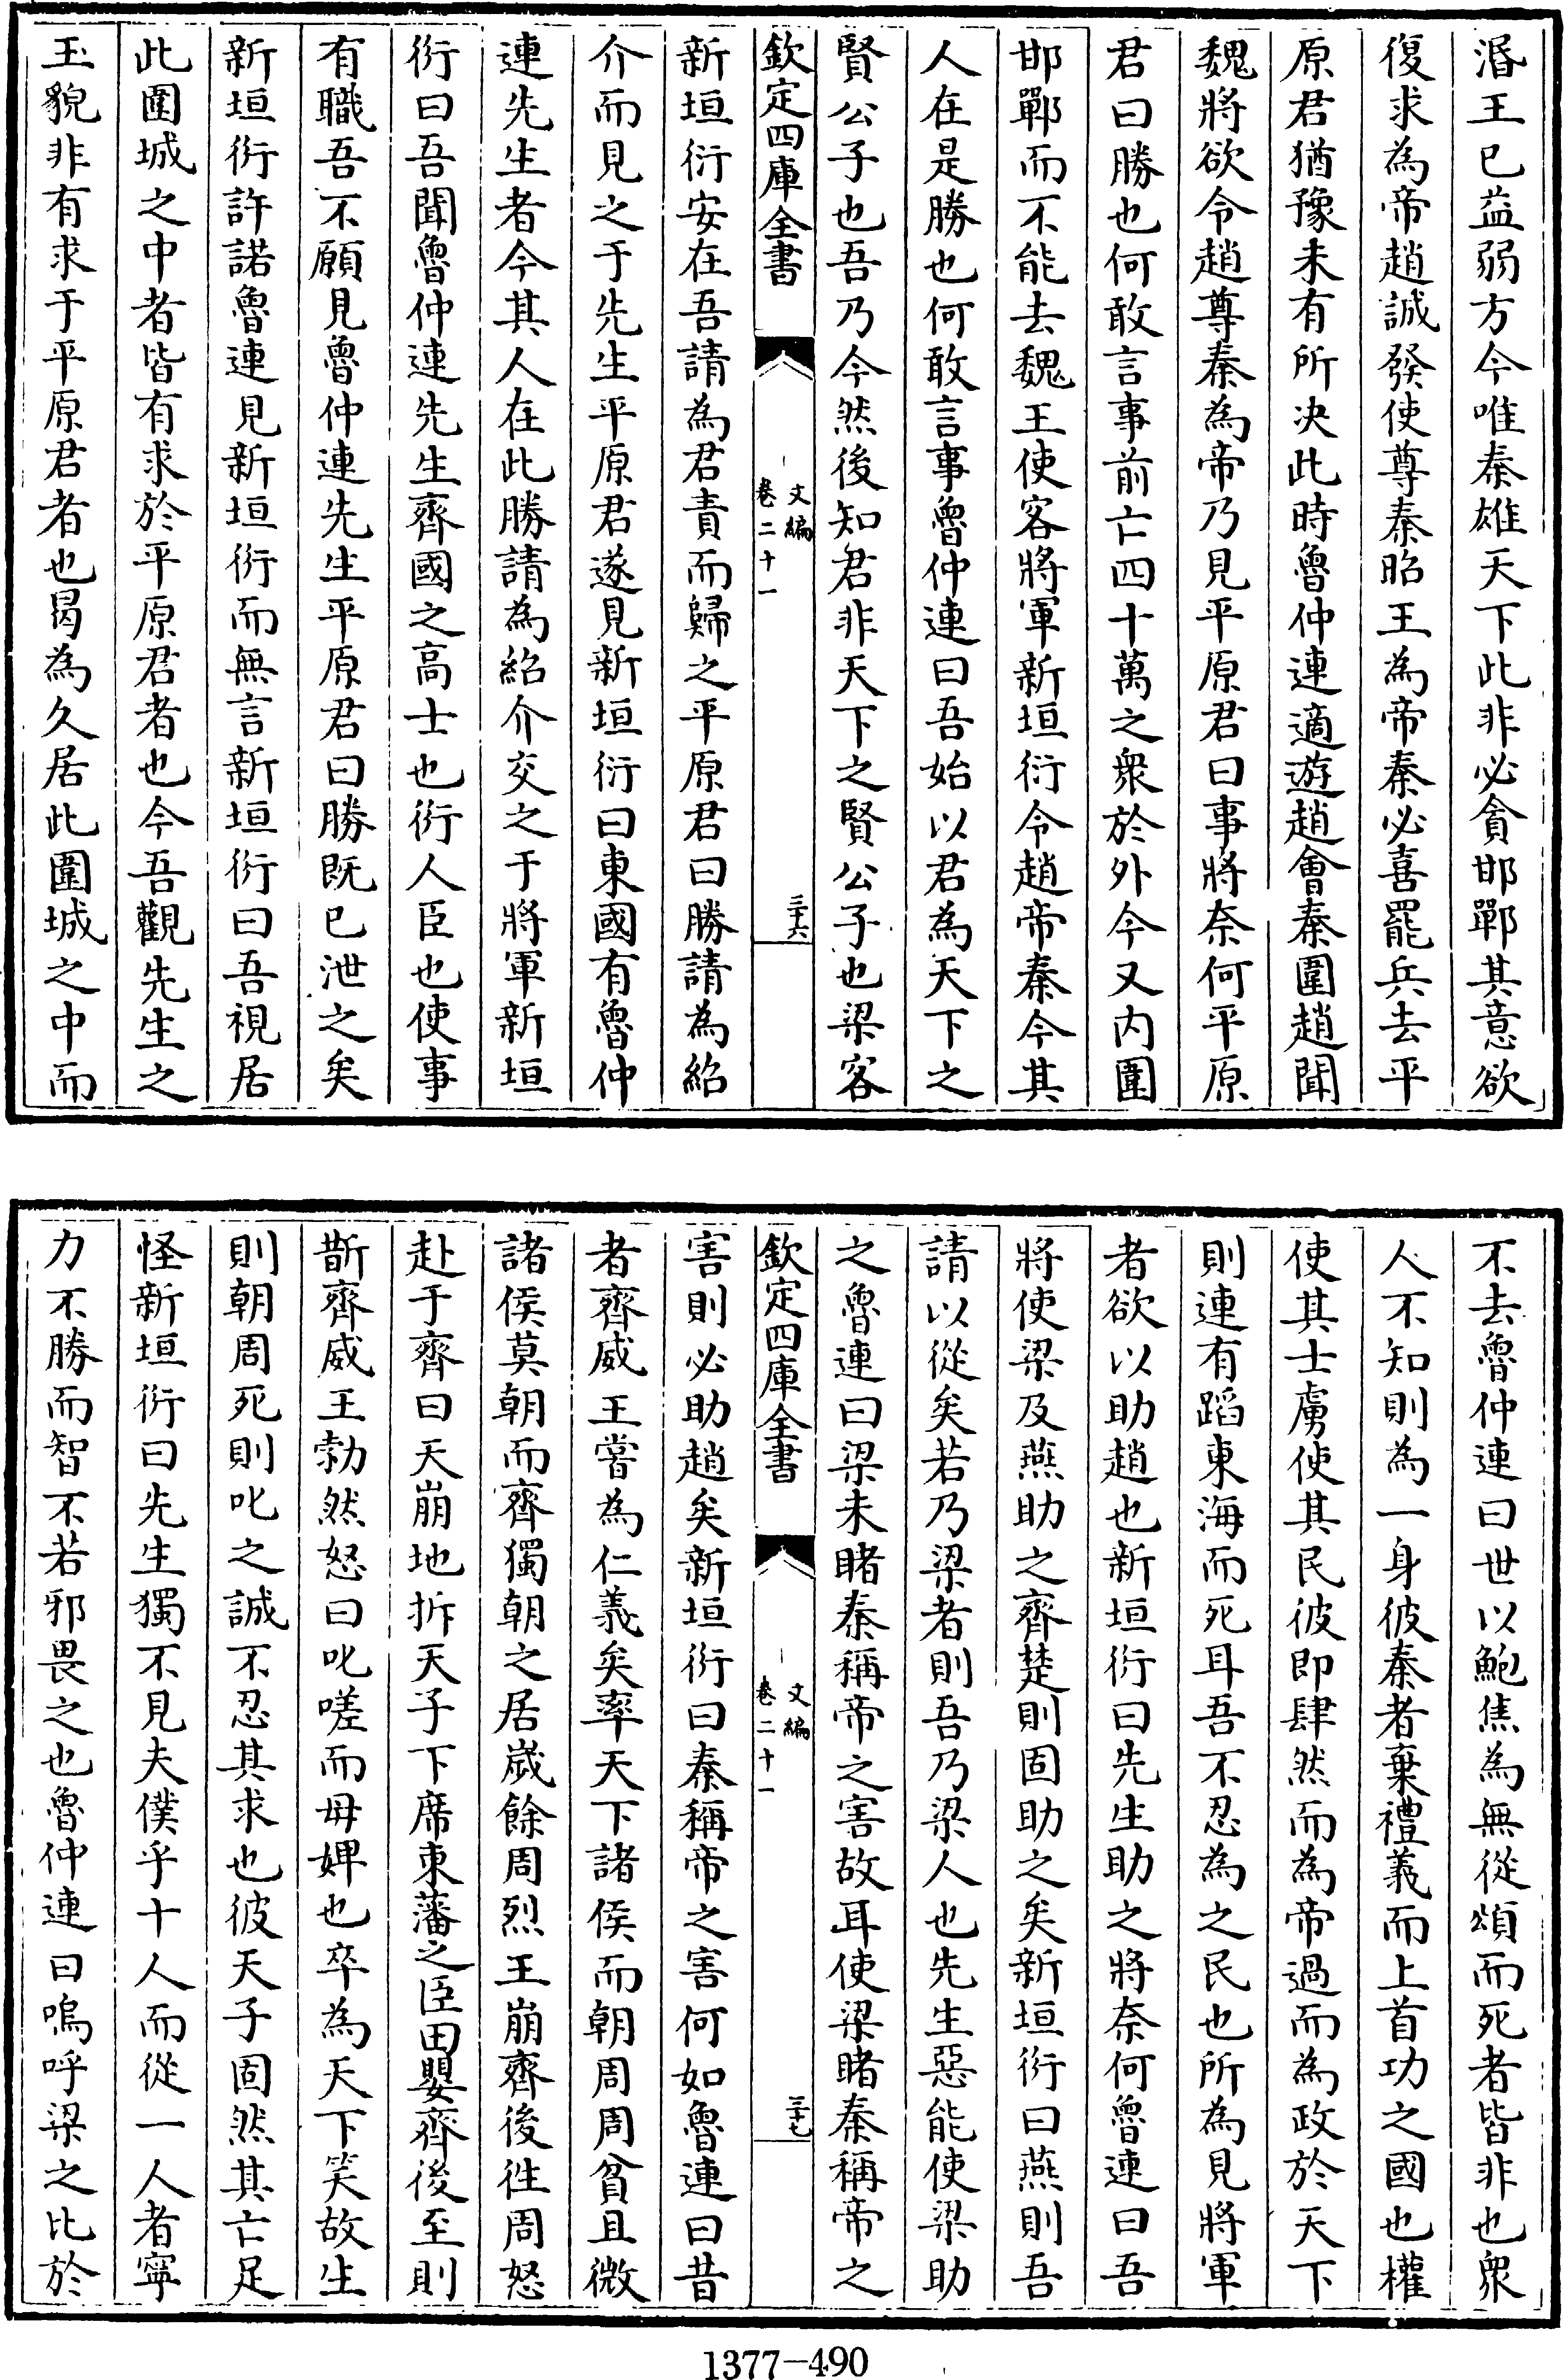 湣王已益弱方今唯秦雄天下此非必貪邯鄲其意欲
復求為帝趙誠發使尊秦昭王為帝秦必喜罷兵去平
原君猶豫未有所决此時魯仲連適遊趙會秦圍趙聞
魏將欲令趙尊秦為帝乃見平原君曰事將奈何平原
君曰勝也何敢言事前亡四十萬之衆於外今又内圍
邯鄲而不能去魏王使客將軍新垣衍令趙帝秦今其
人在是勝也何敢言事魯仲連曰吾始以君為天下之
賢公子也吾乃今然後知君非天下之賢公子也梁客
欽定四庫全書
文編
卷二十一
三十六
新垣衍安在吾請為君責而歸之平原君曰勝請為紹
介而見之于先生平原君遂見新垣衍曰東國有魯仲
連先生者今其人在此勝請為紹介交之于將軍新垣
衍曰吾聞魯仲連先生齊國之高士也衍人臣也使事
有職吾不願見魯仲連先生平原君曰勝既已泄之矣
新垣衍許諾魯連見新垣衍而無言新垣衍曰吾視居
此圍城之中者皆有求於平原君者也今吾觀先生之
玉貌非有求于平原君者也曷為久居此圍城之中而
不去魯仲連曰世以鮑焦為無從頌而死者皆非也衆
人不知則為一身彼秦者棄禮義而上首功之國也權
使其士虜使其民彼即肆然而為帝過而為政於天下
則連有蹈東海而死耳吾不忍為之民也所為見將軍
者欲以助趙也新垣衍曰先生助之將奈何魯連曰吾
將使梁及燕助之齊楚則固助之矣新垣衍曰燕則吾
請以從矣若乃梁者則吾乃梁人也先生惡能使梁助
之魯連曰梁未睹秦稱帝之害故耳使梁睹秦稱帝之
欽定四庫全書
文編
卷二十一
三十七
害則必助趙矣新垣衍曰秦稱帝之害何如魯連曰昔
者齊威王嘗為仁義矣率天下諸侯而朝周周貧且微
諸侯莫朝而齊獨朝之居嵗餘周烈王崩齊後徃周怒
赴于齊曰天崩地拆天子下席東藩之臣田嬰齊後至則
斮齊威王勃然怒曰叱嗟而母婢也卒為天下笑故生
則朝周死則叱之誠不忍其求也彼天子固然其亡足
怪新垣衍曰先生獨不見夫僕乎十人而從一人者寧
力不勝而智不若邪畏之也魯仲連曰嗚呼梁之比於
1377-490